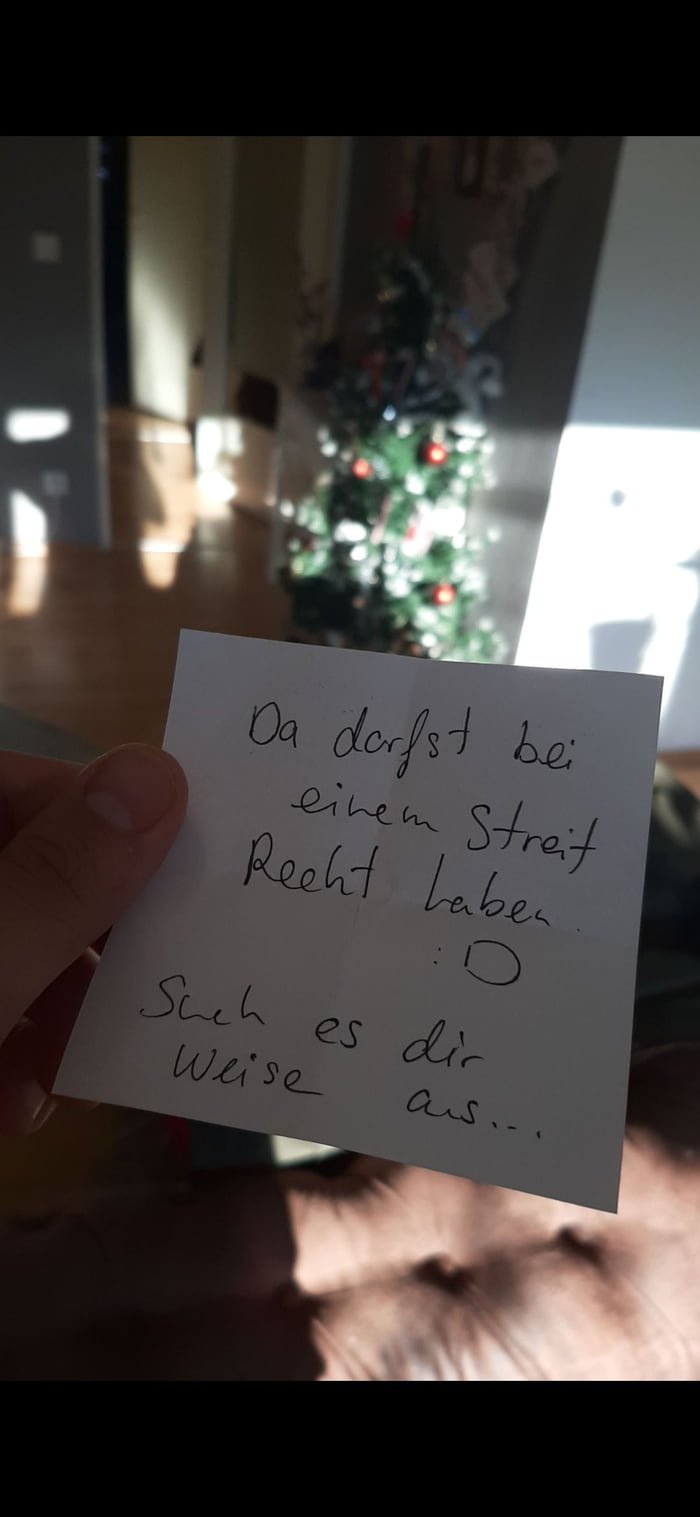 Da darfst bei
einem Streit
Recht haben.
:D
Such es dir
Weise aus...